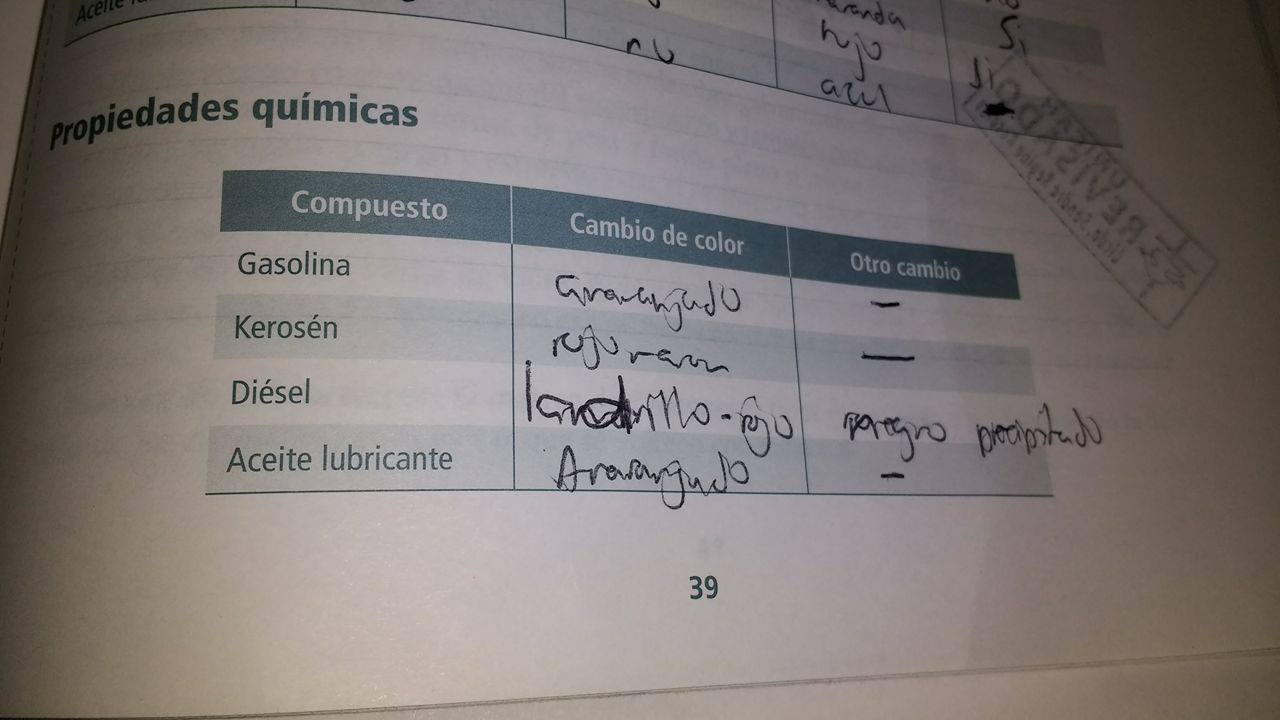 Aceite
no
naranja
rojo
azul
Si
Si
Propiedades químicas
Compuesto Cambio de color Otro cambio
Gasolina Anaranjado —
Kerosén rojo —
Diésel ladrillo-rojo precipitado
Aceite lubricante Anaranjado —
REVISADO
39